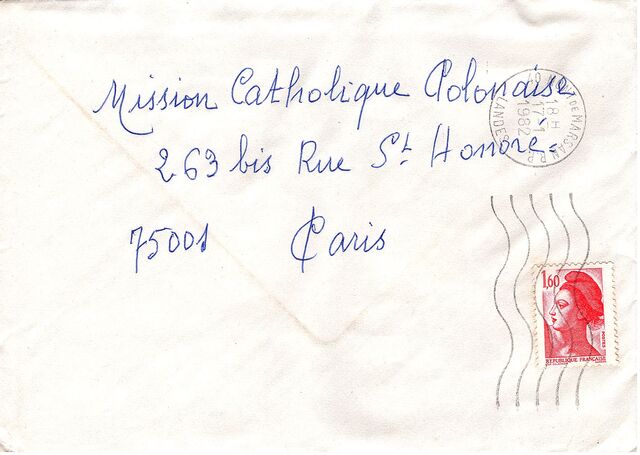 Mission Catholique Polonaise
263 bis Rue St Honoré.
75001 Paris
40 MONT DE MARSAN R.P.
18 H
17-1
1982
LANDES
1,60
POSTES
REPUBLIQUE FRANÇAISE